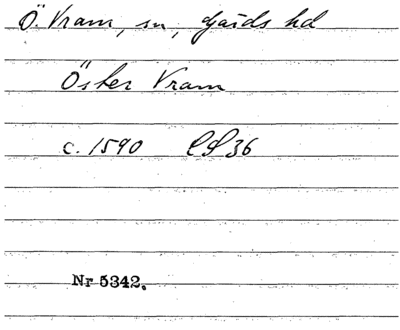 Ö. Vram, sn, Gärds hd
Öster Vram
c. 1590 36
Nr 5342.